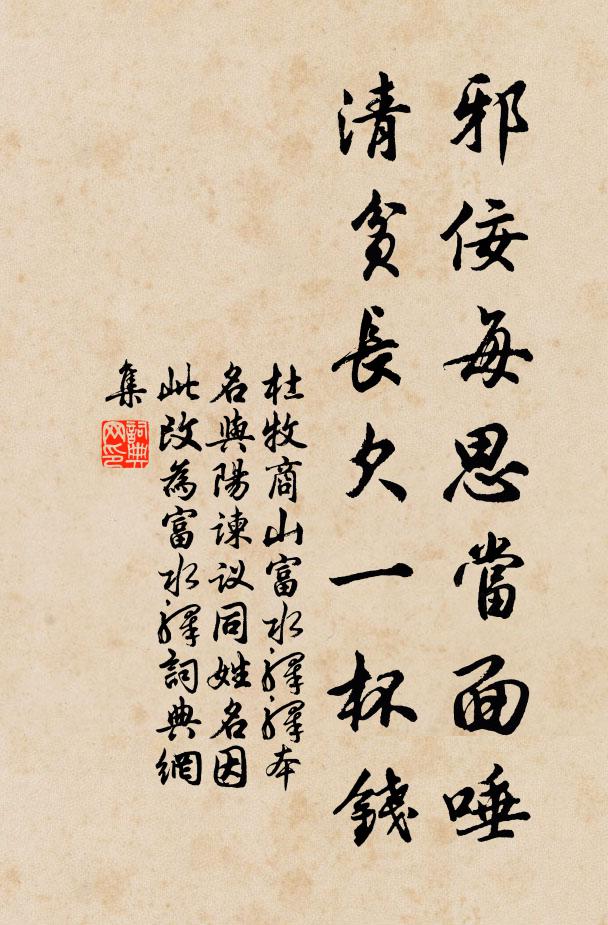 邪佞每思當面唾
清貧長欠一杯錢
杜牧商山富水驛驛本
名與陽諫议同姓名因
此改為富水驛詞典網
集
詞典网印